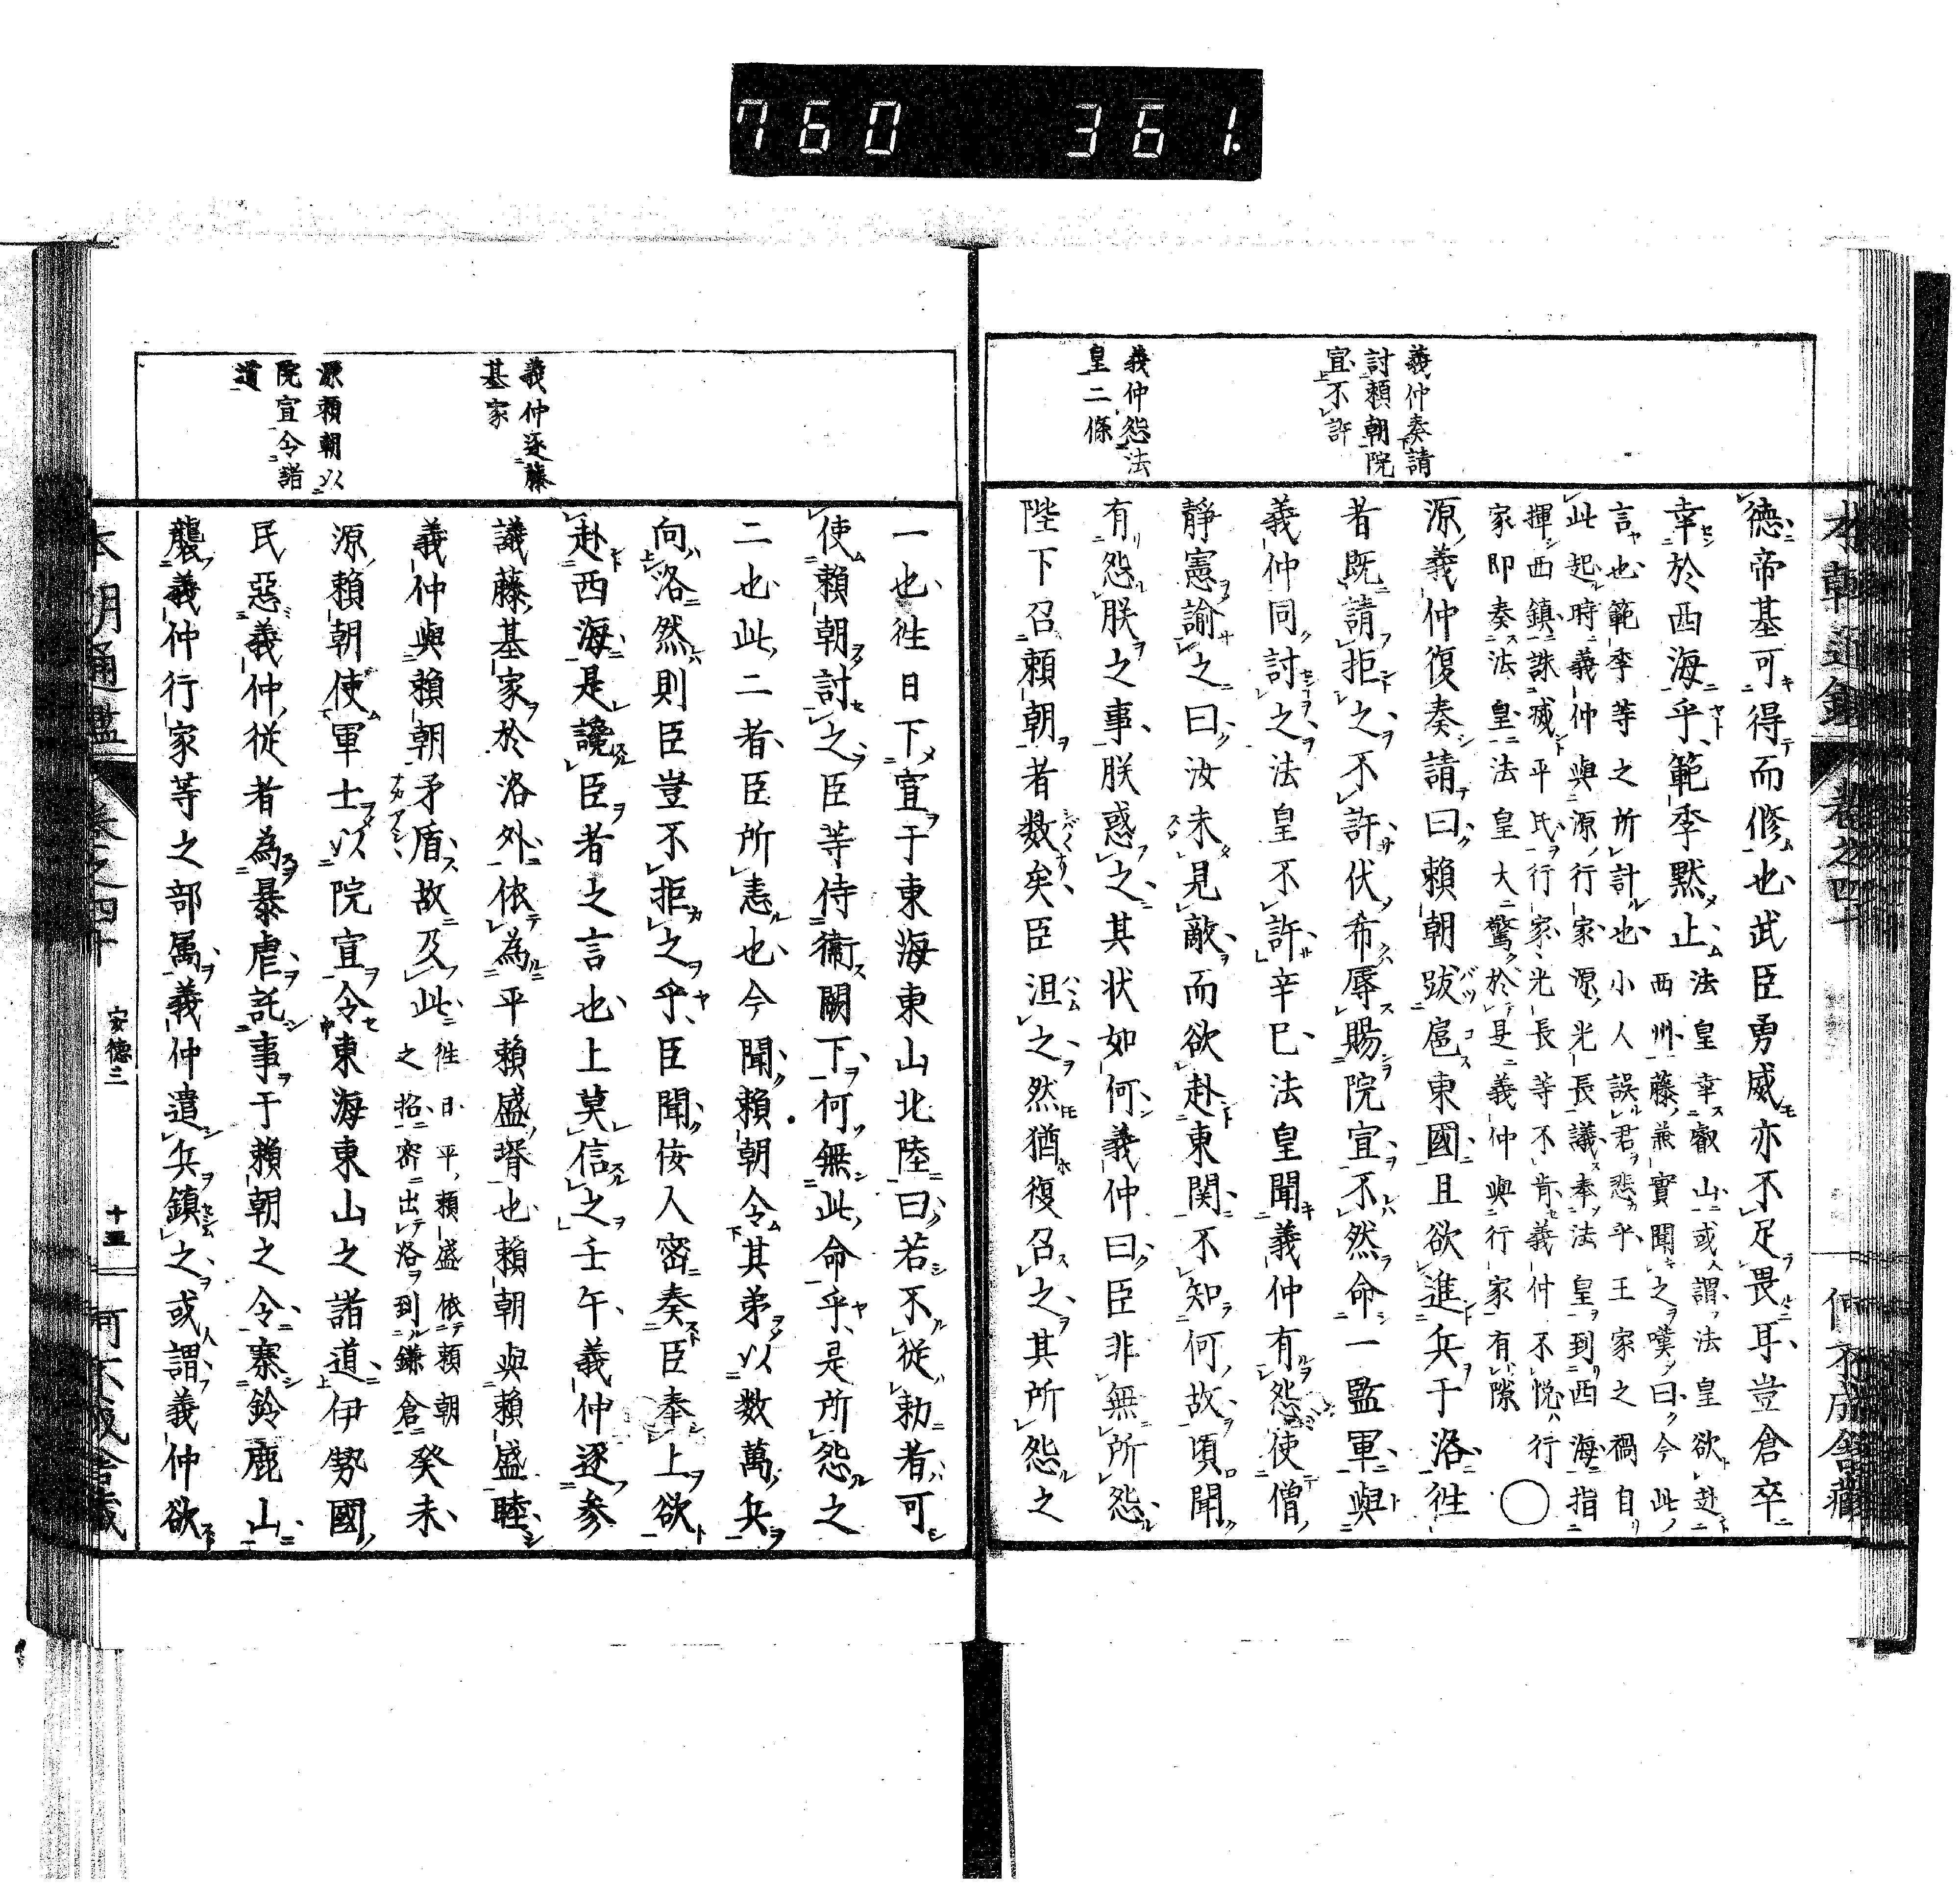 760 361.
義仲奏請
討頼朝院
宣不許
義仲怨法
皇二條
德帝基可得而修也武臣勇威亦不足畏耳豈倉卒
幸於西海乎範季黙止
法皇幸叡山或謂法皇欲赴
西州藤兼實聞之嘆曰今此
言也範季等之所計也小人誤君悲乎王家之禍自
此起時義仲與源行家源光長議奉法皇到西海指
揮西鎮誅滅平氏行家光長等不肯義仲不悦行
家即奏法皇法皇大驚於是義仲與行家有隙
○
源義仲復奏請曰頼朝跋扈東國且欲進兵于洛徃
者既請拒之不許伏希辱賜院宣不然命一監軍與
義仲同討之法皇不許辛巳法皇聞義仲有怨使僧
静憲諭之曰汝未見敵而欲赴東関不知何故頃聞
有怨朕之事朕惑之其状如何義仲曰臣非無所怨
陛下召頼朝者数矣臣沮之然猶復召之其所怨之
義仲逐藤
基家
源頼朝以
院宣令諸
道
一也徃日下宣于東海東山北陸曰若不従勅者可
使頼朝討之臣等侍衞闕下何無此命乎是所怨之
二也此二者臣所恚也今聞頼朝令其弟以数萬兵
向洛然則臣豈不拒之乎臣聞佞人密奏臣奉上欲
赴西海是讒臣者之言也上莫信之壬午義仲逐参
議藤基家於洛外依為平頼盛壻也頼朝與頼盛睦
義仲與頼朝矛盾故及此
徃日平頼盛依頼朝
之招密出洛到鎌倉
癸未
源頼朝使軍士以院宣令東海東山之諸道伊勢國
民惡義仲従者為暴虐託事于頼朝之令塞鈴鹿山
襲義仲行家等之部属義仲遣兵鎮之或謂義仲欲
安德三
十五